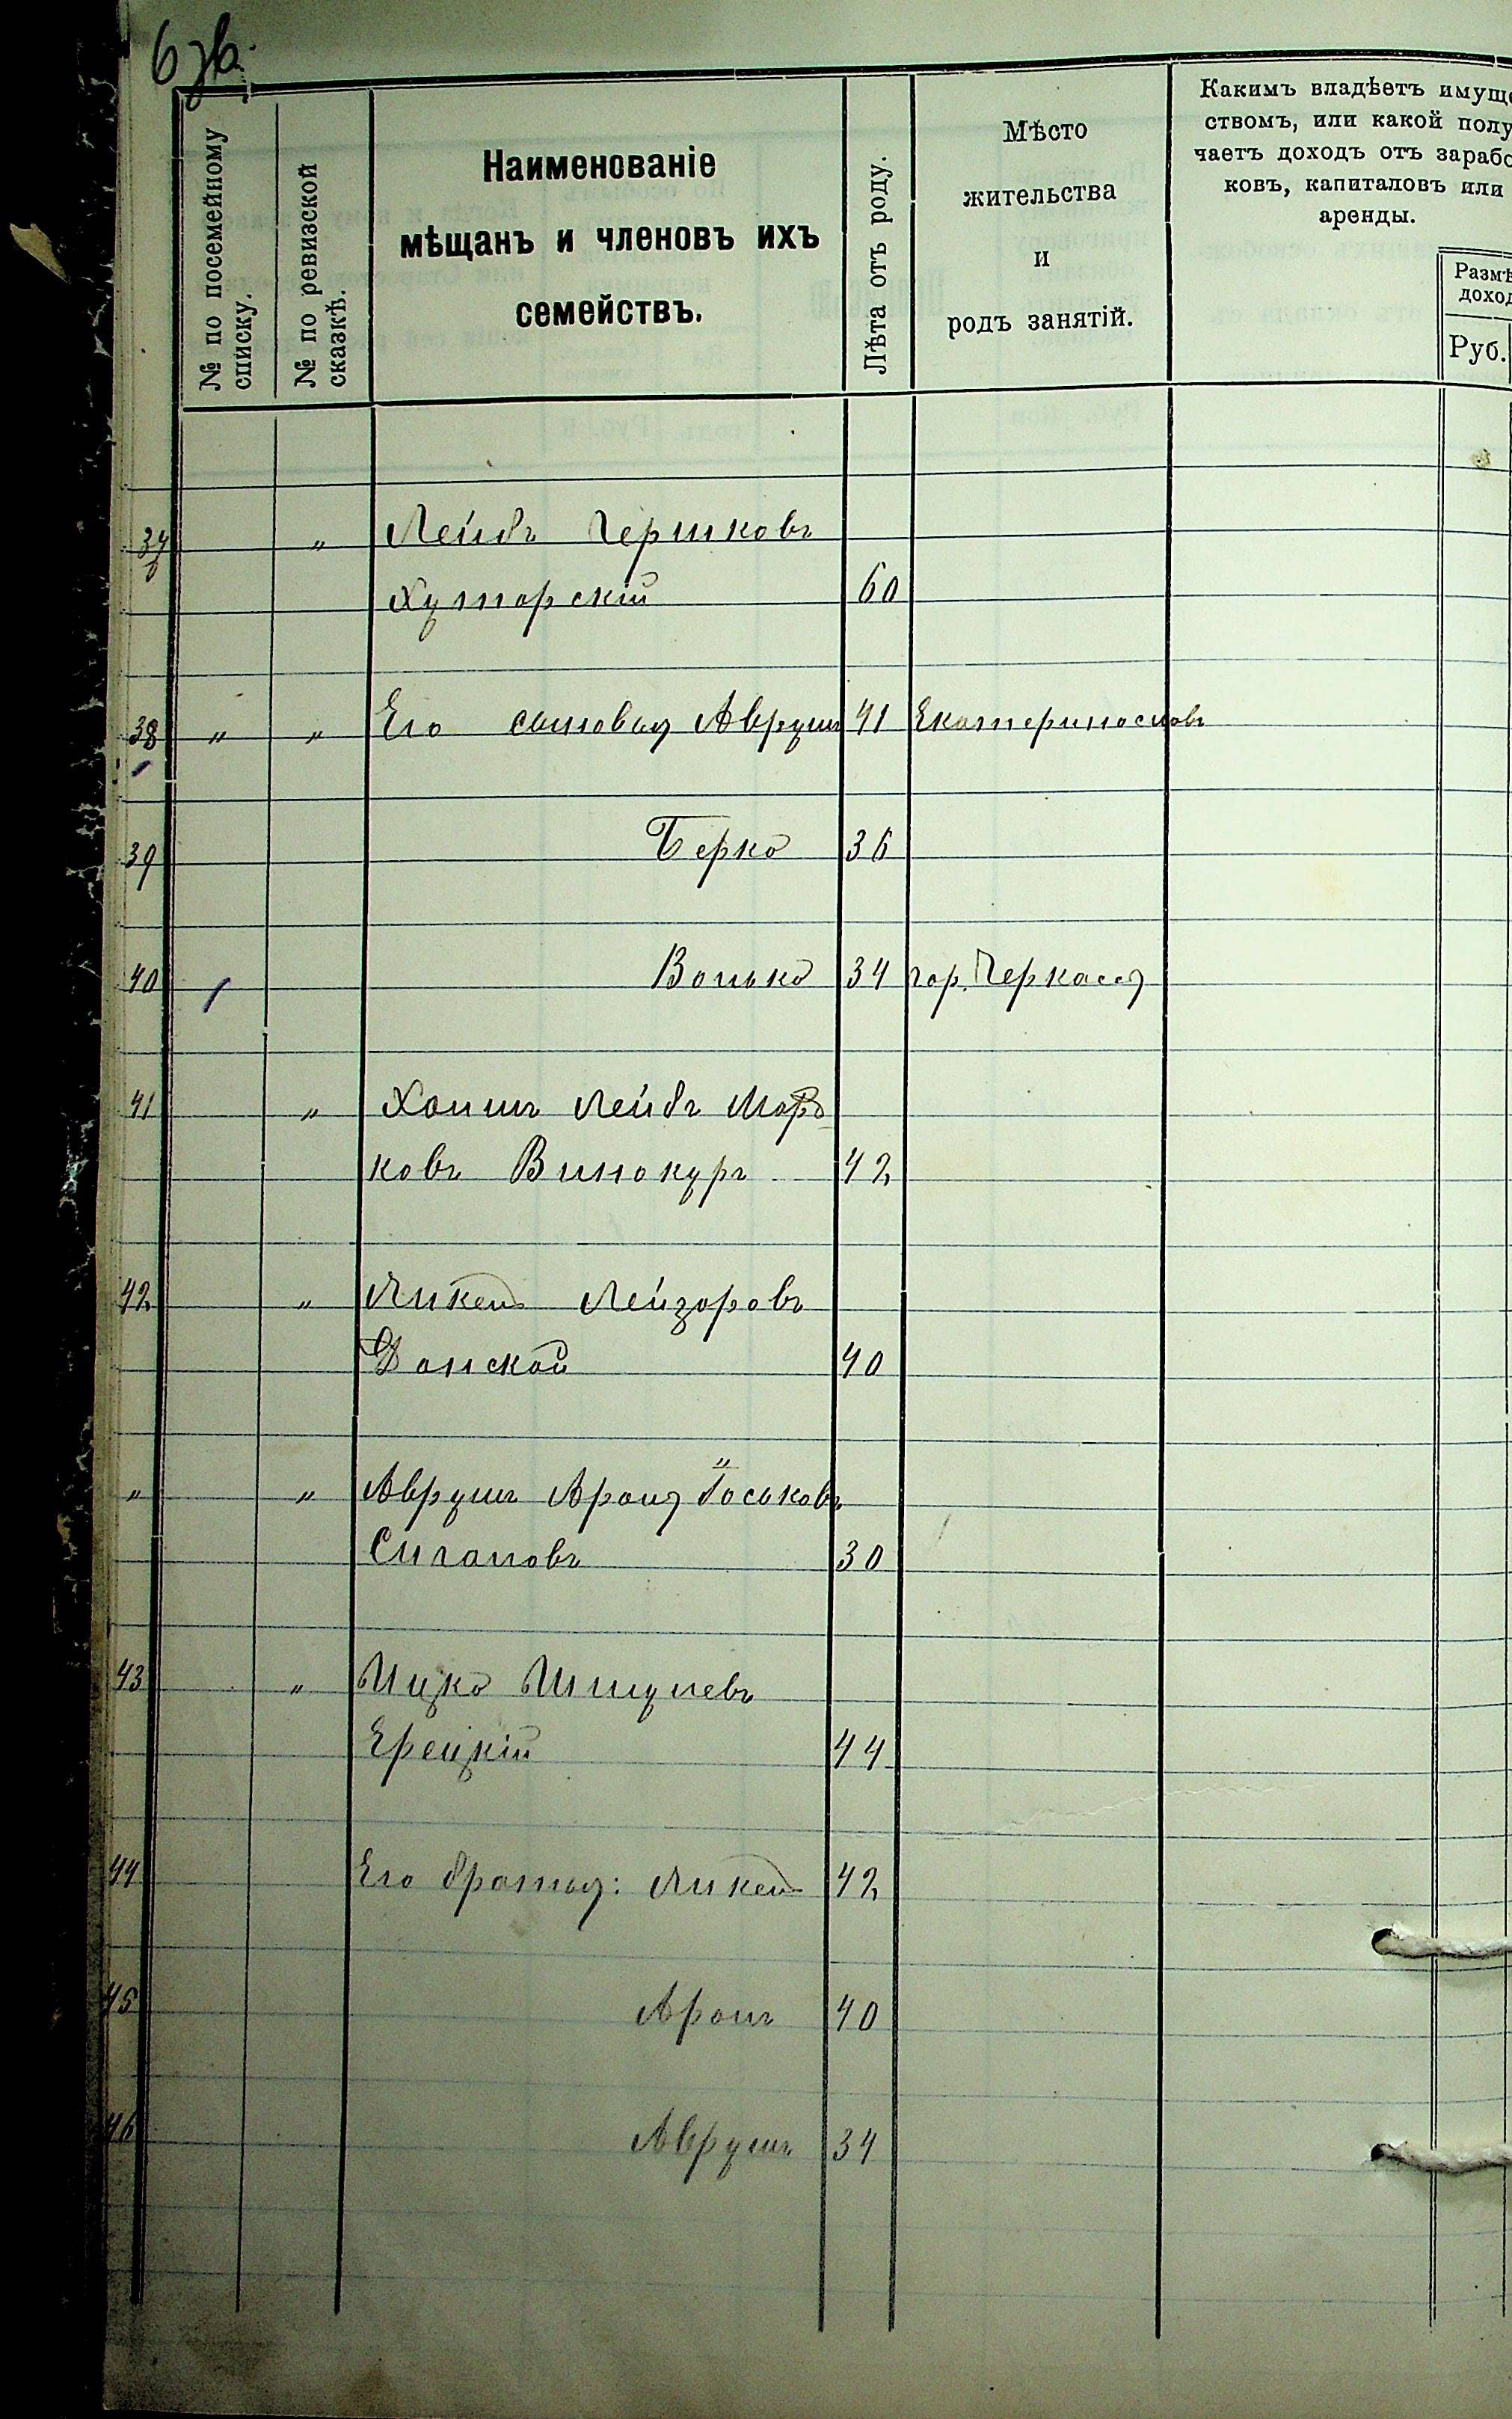 6 зв.
№ по посемейному списку.
№ по ревизской сказкѣ.
Наименованіе
мѣщанъ и членовъ ихъ
семействъ.
Лѣта отъ роду.
Мѣсто
жительства
и
родъ занятій.
Какимъ владѣетъ имуще
ствомъ, или какой полу
чаетъ доходъ отъ зарабо
ковъ, капиталовъ или
аренды.
Размѣ
доход
Руб.
37 " Лейбъ Гершковъ
Хуторскій 60
38 " " Его сыновья Аврумъ 41 Екатеринославъ
39 Берко 36
40 Волько 34 гор. Черкассы
41 " Хаимъ Лейбъ Мор
ковъ Винокуръ 42
42 " Янкель Лейзоровъ
Донской 40
" " Аврумъ Аронъ Іоськовъ
Сигаловъ 30
43 " Ицко Шмулевъ
Ерецкій 44
44 Его братья: Янкель 42
45 Аронъ 40
46 Аврумъ 34